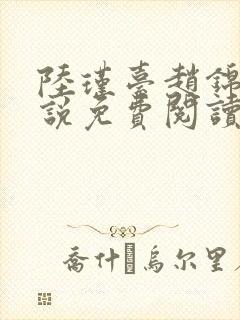 陸瑾臺趙錦
說免費閱讀
喬什烏尔里